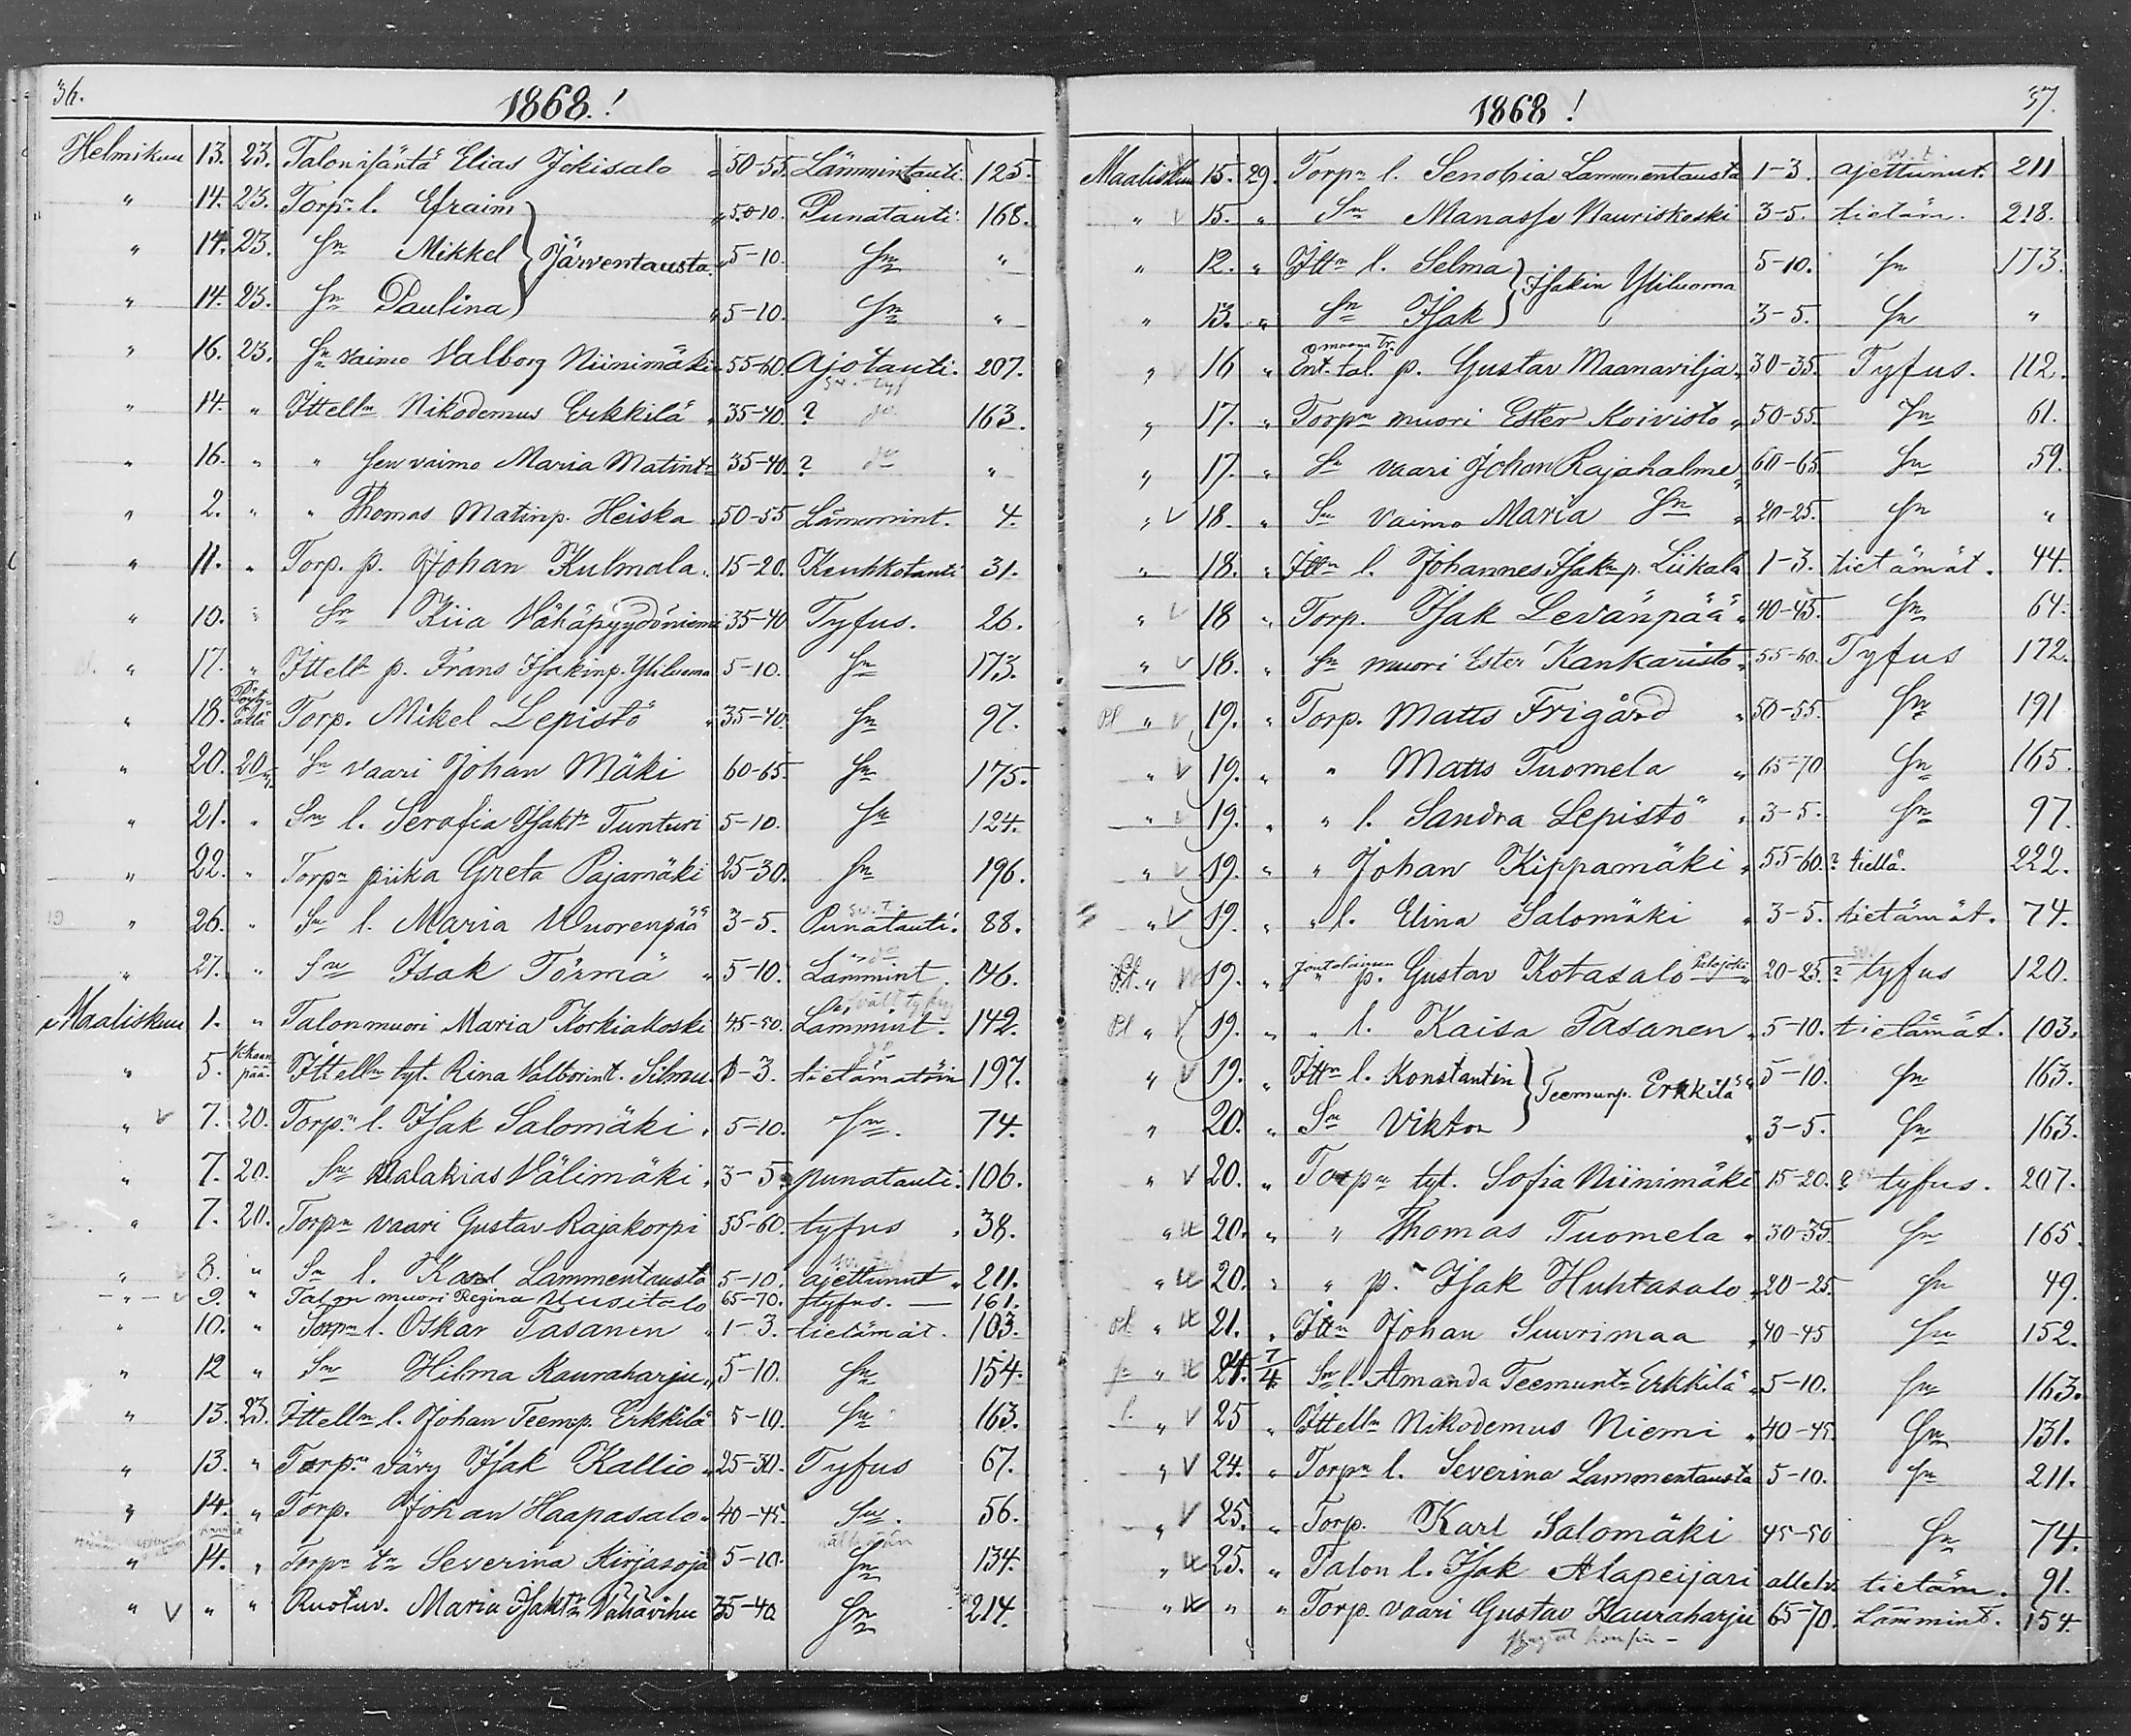 36.
1868.!
Helmikuu 13. 23. Talonisäntä Elias Jokisalo „ 50-55. Lämmintauti. 125.
„ 14. 23. Torpn l. Efraim „ 5-10. Punatauti. 168.
„ 14. 23. Sn Mikkel } Järventausta. „ 5-10. Sn „
„ 14. 23. Sn Paulina „ 5-10. Sn „
„ 16. 23. Sn vaimo Valborg Niinimäki 55-60. Ajotauti. 207.
„ 14. „ Ittelln Nikodemus Erkkilä „ 35-40. ? 163.
„ 16. „ „ Sen vaimo Maria Matint. 35-40. ? „
„ 2. „ „ Thomas Matinp. Heiska „ 50-55 Lämmint. 4.
„ 11. „ Torp. p. Johan Kulmala „ 15-20. Keuhkotauti 31.
„ 10. „ Sn Kiia Vähäpyydönniemi 35-40 Tyfus. 26.
„ 17. „ Ittell p. Frans Isakinp. Yliluoma 5-10. Sn 173.
„ 18. Pöytyällä Torp. Mikel Lepistö „ 35-40. Sn 97.
„ 20. 20 Sn vaari Johan Mäki 60-65. Sn 175.
„ 21. „ Sn l. Serafia Isakt Tunturi 5-10. Sn 124.
„ 22. „ Torpn piika Greta Pajamäki 25-30. Sn 196.
„ 26. „ Sn l. Maria Wuorenpää 3-5. Punatauti. 88.
„ 27. „ Sn Isak Törmä „ 5-10. Lämmint. 146.
Maaliskuu 1. „ Talonmuori Maria Korkiakoski 45-50. Lämmint. 142.
„ 5. Ikaanpää. Ittelln tyt. Rina Valborint. Silmu 1-3. tietämätöin 197.
„ v 7. 20. Torpn l. Isak Salomäki „ 5-10. Sn. 74.
„ 7. 20. Sn Malakias Välimäki „ 3-5. punatauti. 106.
„ 7. 20. Torpn vaari Gustav Rajakorpi 55-60. tyfus 38.
„ 8. „ Sn l. Karl Lammentausta 5-10. ajettunut „ 211.
„ v 9. „ Talon muori Regina Uusitalo 65-70. tyfus. — 161.
„ 10. „ Torpn l. Oskar Tasanen „ 1-3. tietämät. 103.
„ 12 „ Sn Hilma Kauraharju „ 5-10. Sn 154.
„ 13. 23. Ittelln l. Johan Teemp. Erkkilä 5-10. Sn 163.
„ 13. „ Torpn vävy Isak Kallio „ 25-30. Tyfus 67.
„ 14. „ Torp. Johan Haapasalo „ 40-45. Sn. 56.
„ 14. „ Torpn tr Severina Kirjasoja 5-10. Sn 134.
„ V „ „ Ruotuv. Maria Isakt Vähävihu 35-40 Sn 214.
37.
1868!
Maaliskuu 15. 29. Torpn l. Senobia Lammentausta 1-3. ajettunut. 211
„ V 15. „ Sn Manasse Nauriskoski 3-5. tietäm. 218.
„ 12. „ Ittn l. Selma } Isakin Yliluoma 5-10. Sn 173.
„ 13. „ Sn Isak 3-5. Sn „
„ 16 „ Ent. tal. p. Gustav Maanavilja „ 30-35. Tyfus. 112.
„ 17. „ Torpn muori Ester Koivisto „ 50-55. Sn 61.
„ 17. „ Sn vaari Johan Rajahalme „ 60-65 Sn 59.
„ V 18. „ Sn vaimo Maria Sn „ 20-25. Sn „
„ 18. „ Ittn l. Johannes Isakinp. Liikala 1-3. tietämät. 44.
„ V 18 „ Torp. Isak Levänpää „ 40-45. Sn 64.
„ V 18. „ Sn muori Ester Kankaristo „ 55-60. Tyfus 172.
Pl „ V 19. „ Torp. Matts Frigård „ 50-55. Sn 191
„ V 19. „ „ Matts Tuomela „ 65-70 Sn 165.
„ V 19. „ „ l. Sandra Lepistö „ 3-5. Sn 97.
„ V 19. „ „ Johan Kippamäki „ 55-60. ? tiellä. 222.
„ V 19. „ „ l. Elina Salomäki „ 3-5. tietämät. 74.
Pl. „ 19. „ Jontolainen p. Gustav Kotasalo 20-25. ? tyfus 120.
Pl „ V 19. „ „ l. Kaisa Tasanen „ 5-10. tietämät. 103.
„ V 19. „ Ittn l. Konstantin } Teemunp. Erkkilä „ 5-10. Sn 163.
„ 20. „ Sn Viktor „ 3-5. Sn 163.
„ V 20. „ Torpn tyt. Sofia Niinimäki 15-20. ? tyfus. 207.
„ 20. „ „ Thomas Tuomela „ 30-35. Sn 165.
„ 20. „ „ p. Isak Huhtasalo „ 20-25 Sn 49.
Pl „ 21. „ Ittn Johan Suurimaa „ 40-45 Sn 152.
„ 24. 7/4 Sn l. Amanda Teemunt Erkkilä „ 5-10. Sn 163.
„ V 25 „ Ittelln Nikodemus Niemi „ 40-45 Sn 131.
„ V 24. „ Torpn l. Severina Lammentausta 5-10. Sn 211.
„ V 25. „ Torp. Karl Salomäki 45-50 Sn 74.
„ 25. „ Talon l. Isak Alapeijari allelv. tietäm. 91.
„ „ „ Torp. vaari Gustav Kauraharju 65-70. Lämmint. 154.